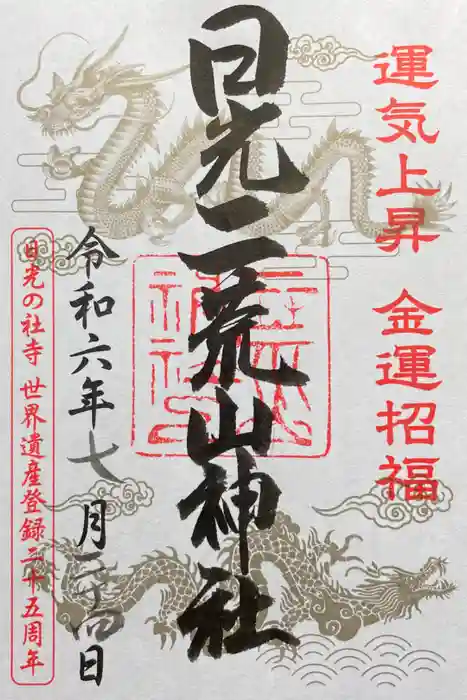 運気上昇 金運招福
日光二荒山神社
令和六年七月二十四日
日光の社寺 世界遺産登録二十五周年